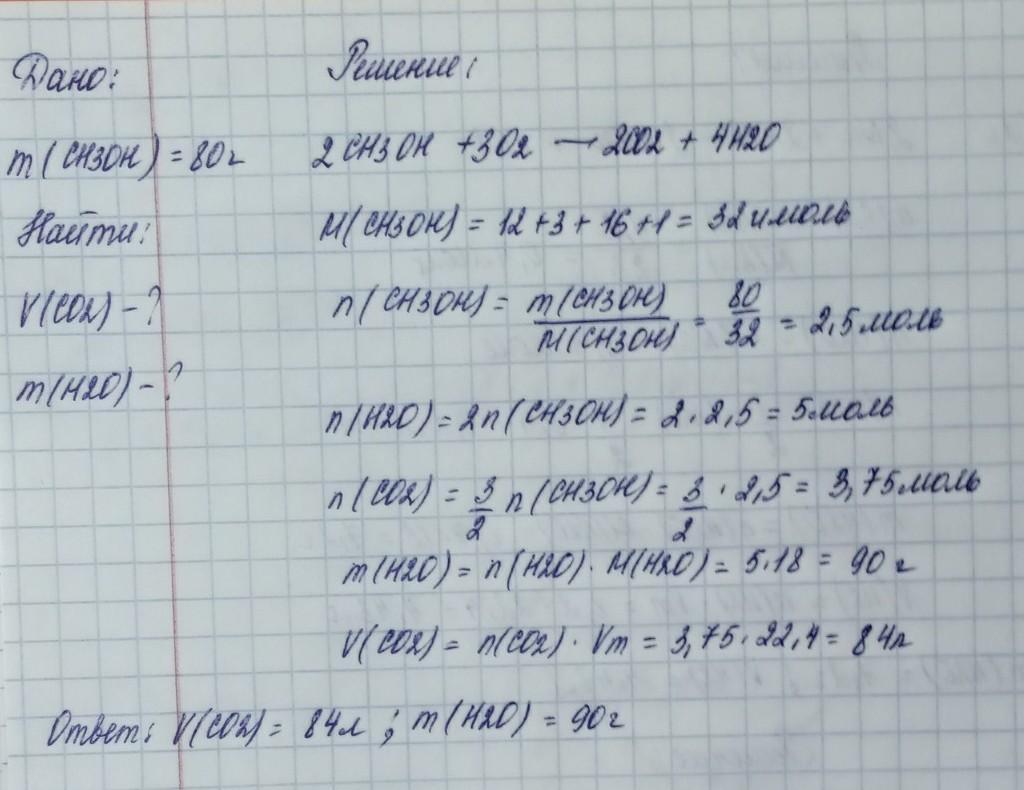 Дано:
Решение:
m(CH3OH) = 80г
2CH3OH + 3O2 — 2CO2 + 4H2O
Найти:
M(CH3OH) = 12+3+16+1 = 32 г/моль
V(CO2) - ?
n(CH3OH) = m(CH3OH)/M(CH3OH) = 80/32 = 2,5 моль
m(H2O) - ?
n(H2O) = 2n(CH3OH) = 2·2,5 = 5 моль
n(CO2) = 3/2 n(CH3OH) = 3/2 · 2,5 = 3,75 моль
m(H2O) = n(H2O)·M(H2O) = 5·18 = 90 г
V(CO2) = n(CO2)·Vm = 3,75·22,4 = 84л
Ответ: V(CO2) = 84л ; m(H2O) = 90г